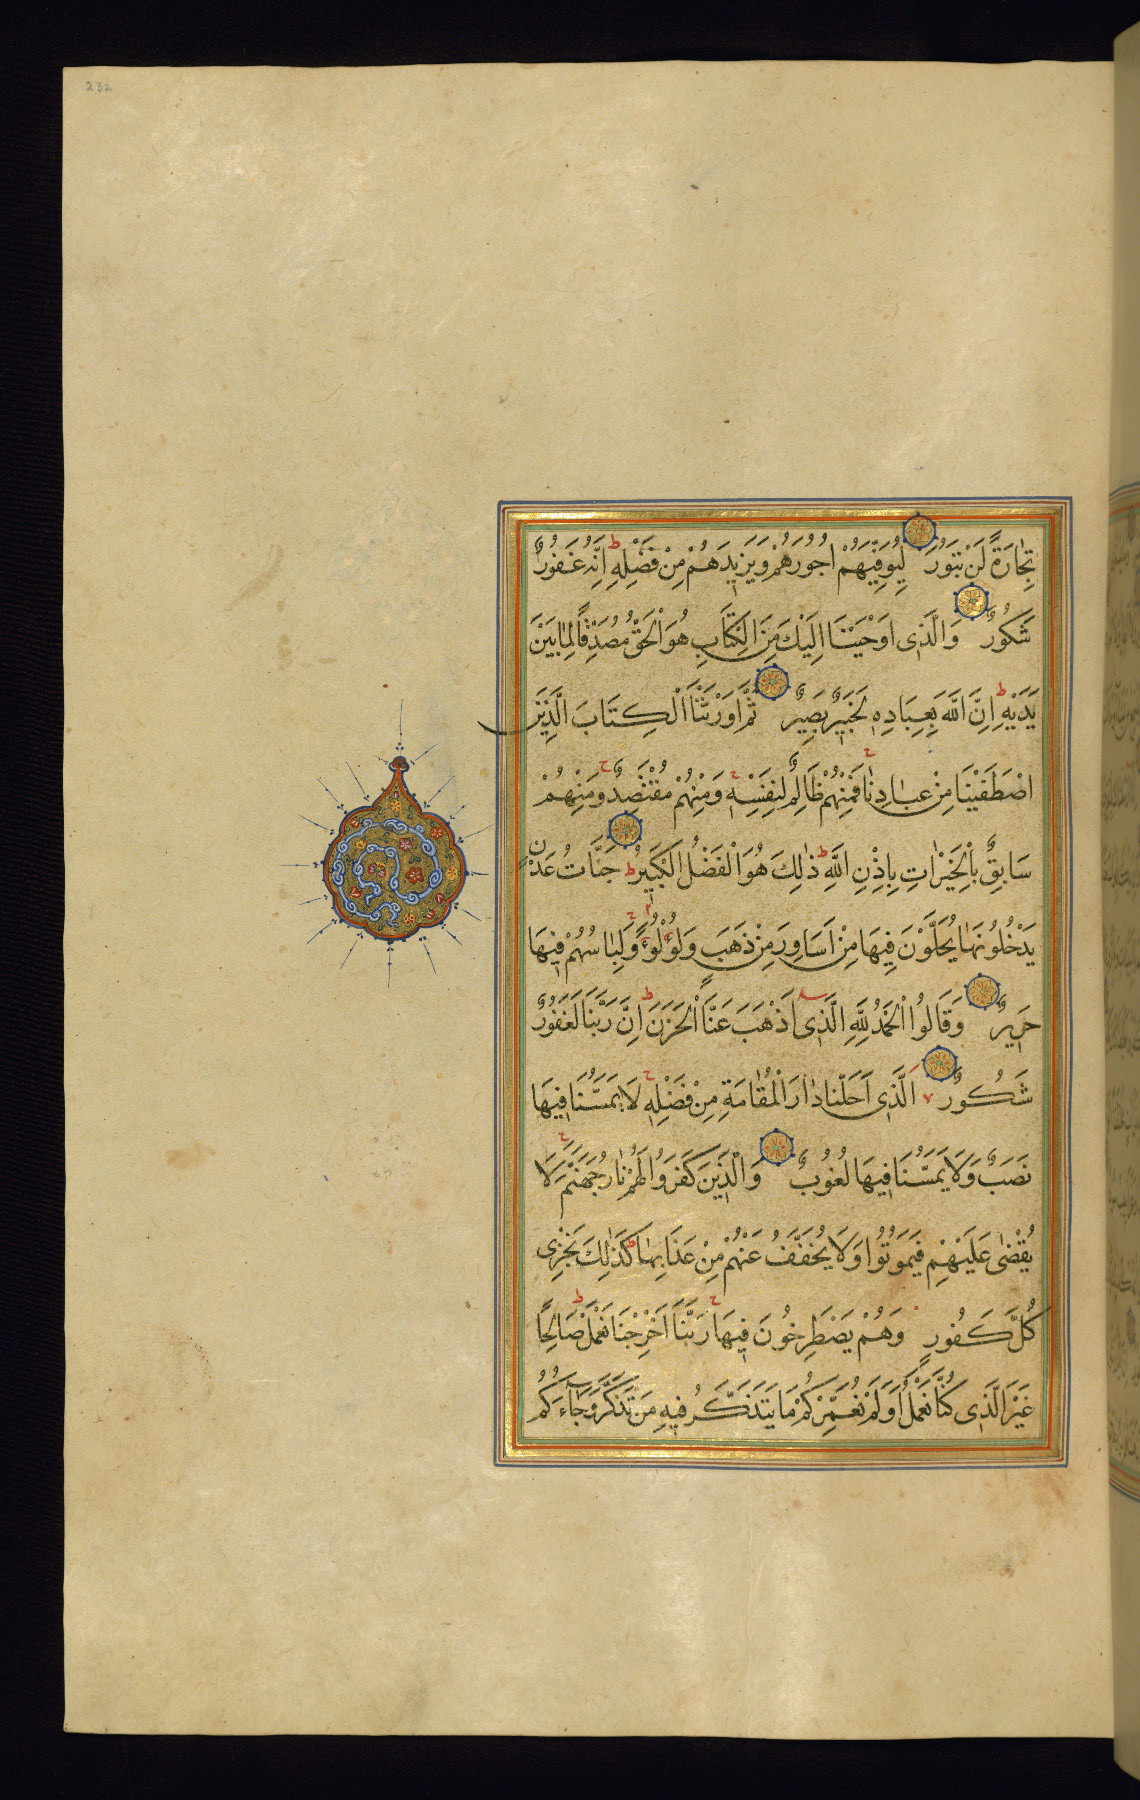 232
تِجَارَةً لَنْ تَبُورَ لِيُوَفِّيَهُمْ اُجُورَهُمْ وَيَزِيدَهُمْ مِنْ فَضْلِهِ اِنَّهُ غَفُورٌ
شَكُورٌ وَالَّذِى اَوْحَيْنَا اِلَيْكَ مِنَ الْكِتَابِ هُوَ الْحَقُّ مُصَدِّقًا لِمَا بَيْنَ
يَدَيْهِ اِنَّ اللّٰهَ بِعِبَادِهِ لَخَبِيرٌ بَصِيرٌ ثُمَّ اَوْرَثْنَا الْكِتَابَ الَّذِينَ
اصْطَفَيْنَا مِنْ عِبَادِنَا فَمِنْهُمْ ظَالِمٌ لِنَفْسِهِ وَمِنْهُمْ مُقْتَصِدٌ وَمِنْهُمْ
سَابِقٌ بِالْخَيْرَاتِ بِاِذْنِ اللّٰهِ ذٰلِكَ هُوَ الْفَضْلُ الْكَبِيرُ جَنَّاتُ عَدْنٍ
يَدْخُلُونَهَا يُحَلَّوْنَ فِيهَا مِنْ اَسَاوِرَ مِنْ ذَهَبٍ وَلُؤْلُؤًا وَلِبَاسُهُمْ فِيهَا
حَرِيرٌ وَقَالُوا الْحَمْدُ لِلّٰهِ الَّذِى اَذْهَبَ عَنَّا الْحَزَنَ اِنَّ رَبَّنَا لَغَفُورٌ
شَكُورٌ اَلَّذِى اَحَلَّنَا دَارَ الْمُقَامَةِ مِنْ فَضْلِهِ لَا يَمَسُّنَا فِيهَا
نَصَبٌ وَلَا يَمَسُّنَا فِيهَا لُغُوبٌ وَالَّذِينَ كَفَرُوا لَهُمْ نَارُ جَهَنَّمَ لَا
يُقْضٰى عَلَيْهِمْ فَيَمُوتُوا وَلَا يُخَفَّفُ عَنْهُمْ مِنْ عَذَابِهَا كَذٰلِكَ نَجْزِى
كُلَّ كَفُورٍ وَهُمْ يَصْطَرِخُونَ فِيهَا رَبَّنَا اَخْرِجْنَا نَعْمَلْ صَالِحًا
غَيْرَ الَّذِى كُنَّا نَعْمَلُ اَوَلَمْ نُعَمِّرْكُمْ مَا يَتَذَكَّرُ فِيهِ مَنْ تَذَكَّرَ وَجَاءَكُمُ